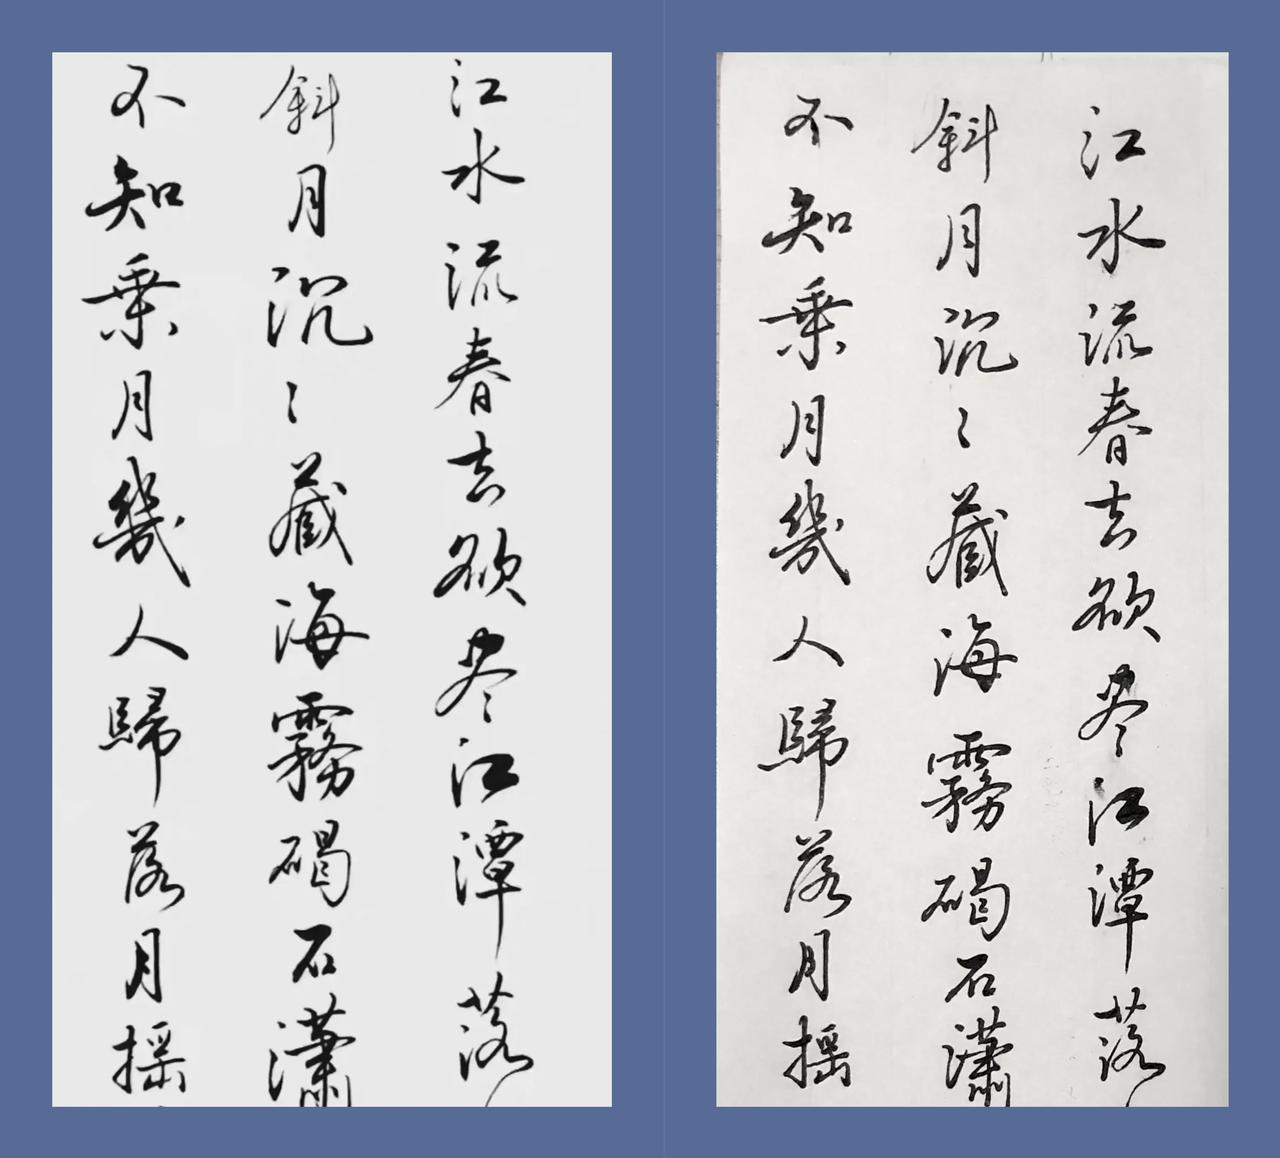 江水流春去欲尽江潭落
斜月沉々藏海霧碣石瀟
不知乘月幾人歸落月摇
江水流春去欲尽江潭落
斜月沉々藏海霧碣石瀟
不知乘月幾人歸落月摇